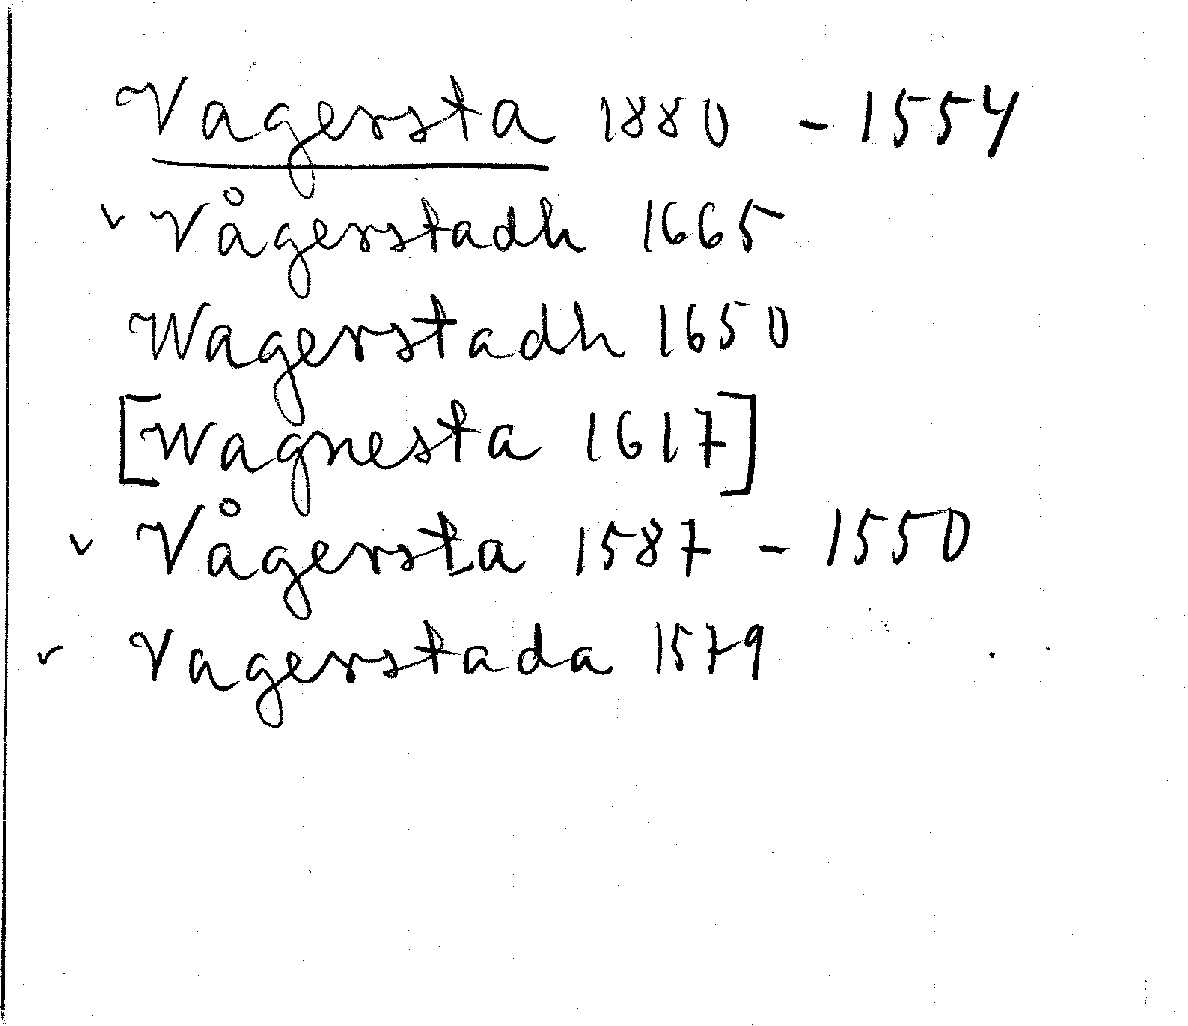 Vagersta 1880 - 1554
v Vågerstadh 1665
Wagerstadh 1650
[Wagnesta 1617]
v Vågersta 1587 - 1550
v Vagerstada 1579